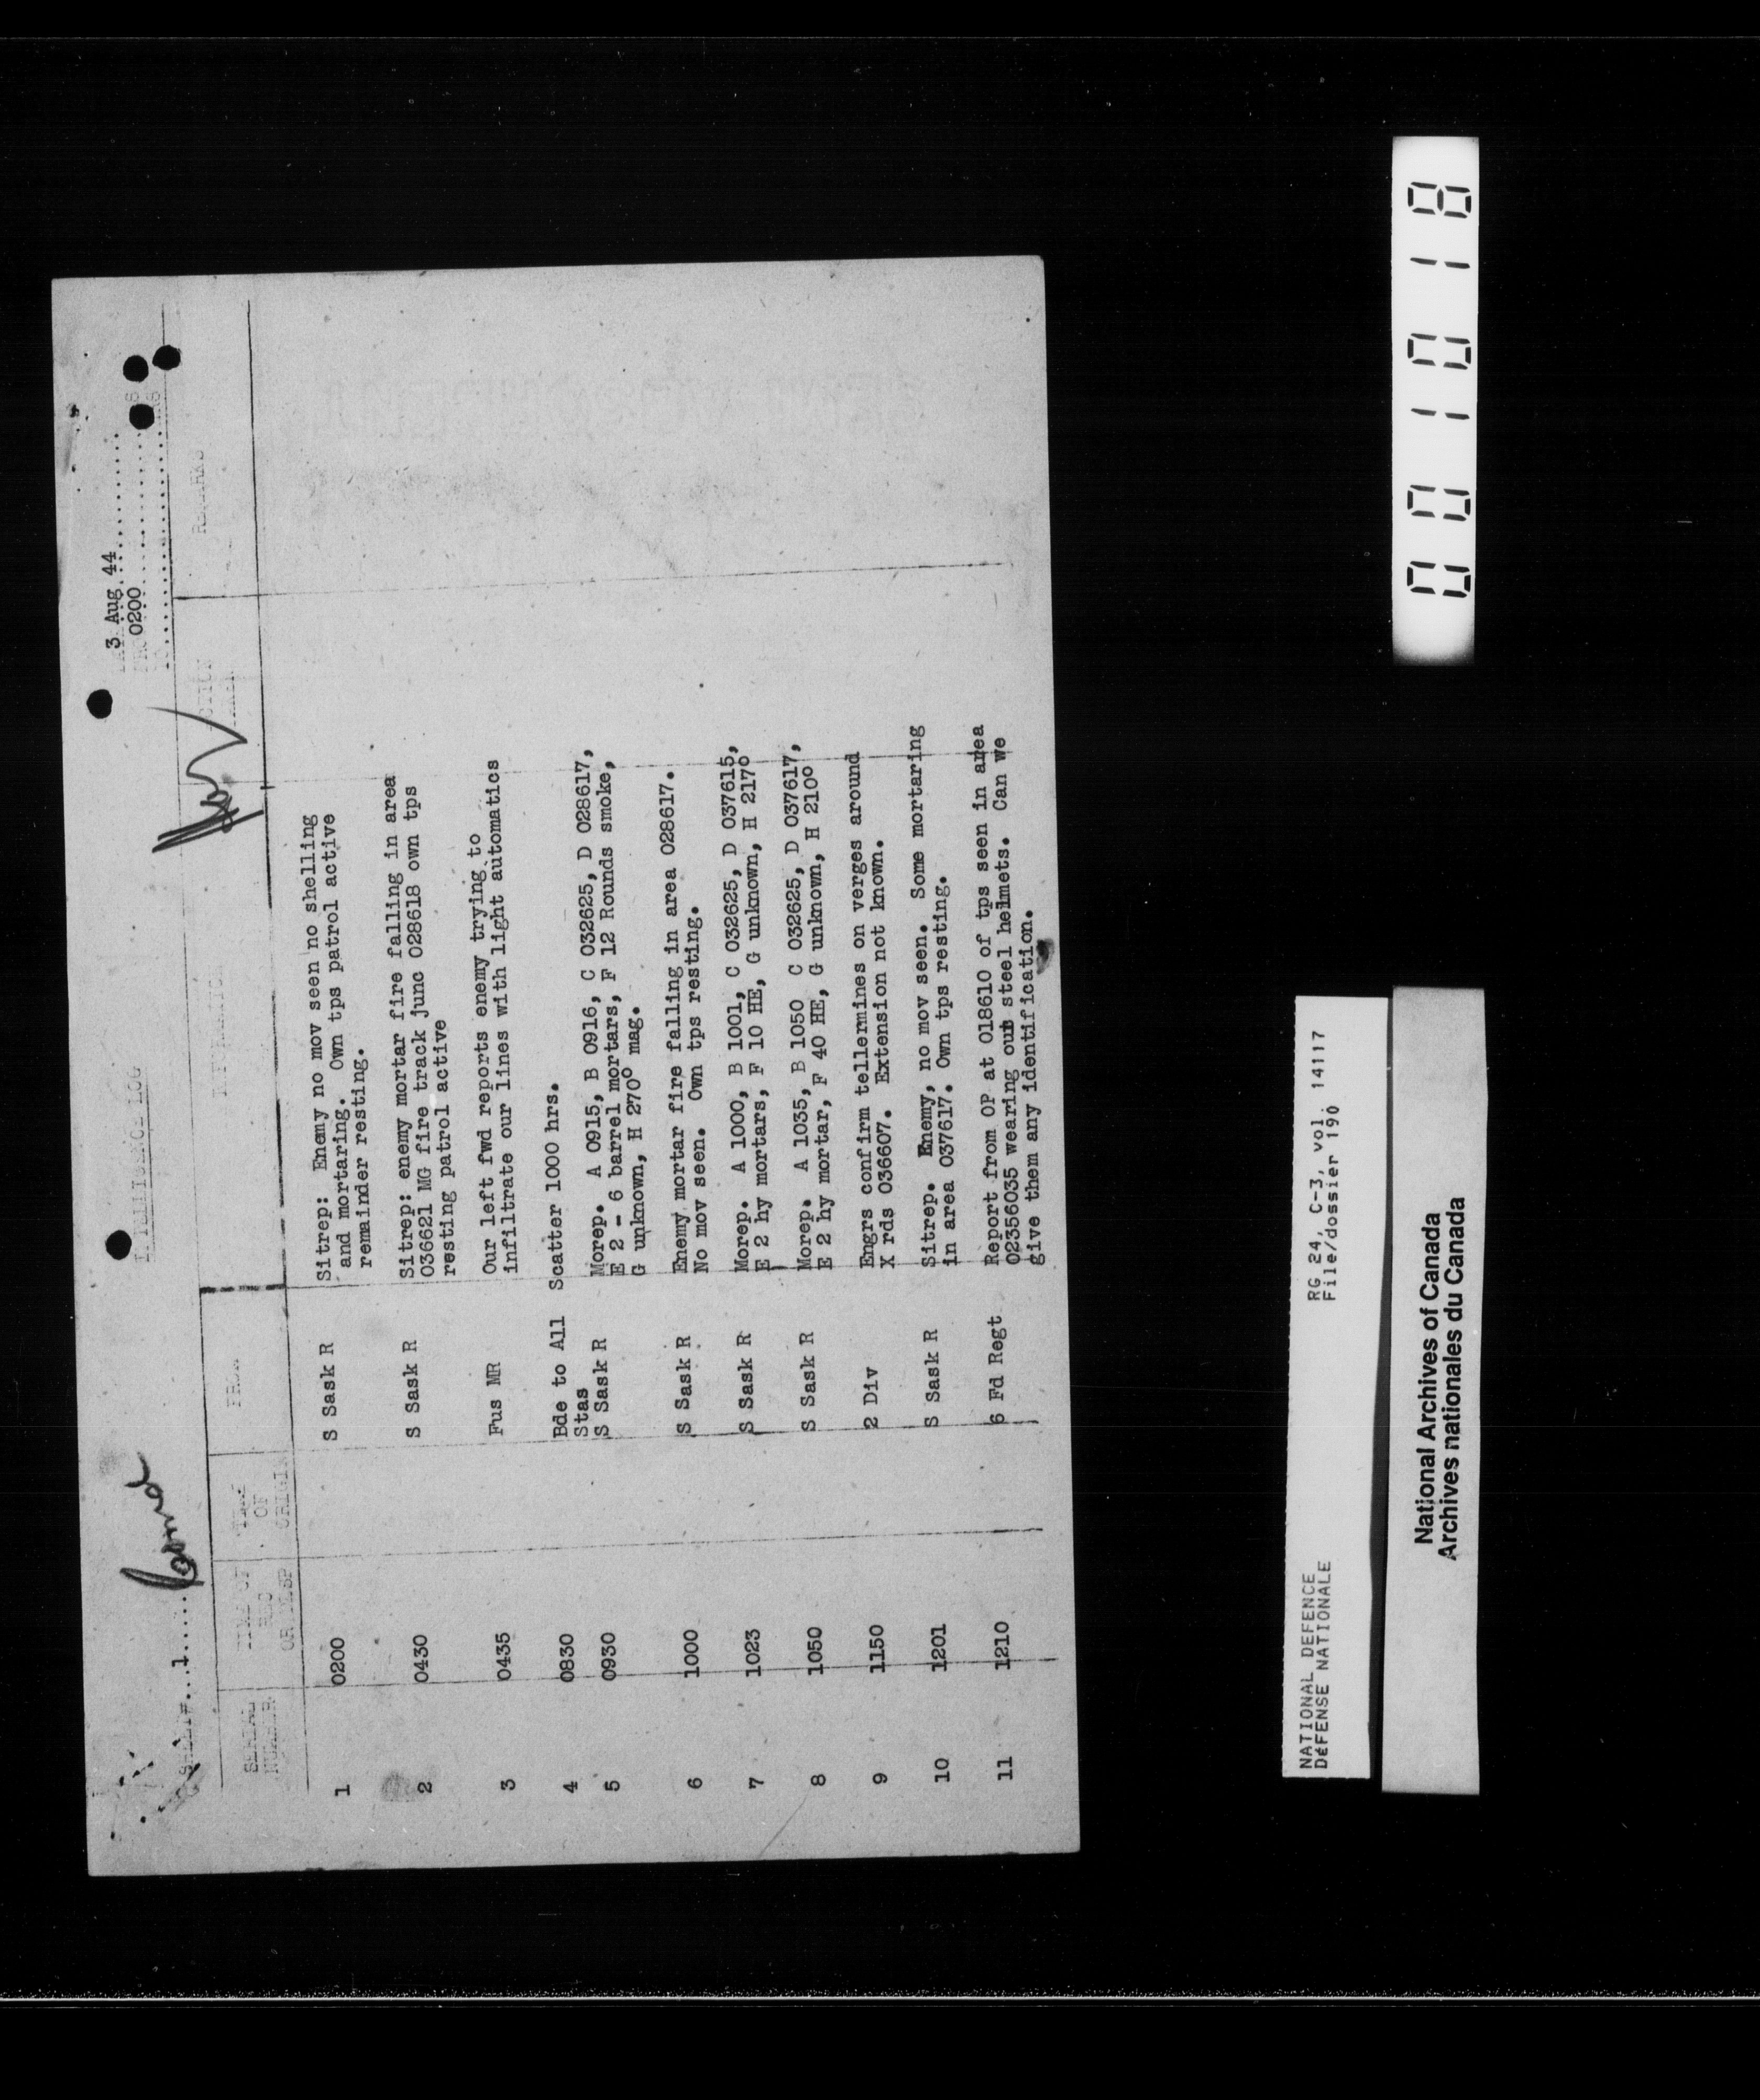 INTELLIGENCE LOG
3 Aug 44
0200
SHEET#...1....
SERIAL NUMBER
TIME OF REC OR DESP
TIME OF ORIGIN
FROM
INFORMATION
ACTION TAKEN
REMARKS
1 0200 S Sask R Sitrep: Enemy no mov seen no shelling
and mortaring. Own tps patrol active
remainder resting.
2 0430 S Sask R Sitrep: enemy mortar fire falling in area
036621 MG fire track junc 028618 own tps
resting patrol active
3 0435 Fus MR Our left fwd reports enemy trying to
infiltrate our lines with light automatics
4 0830 Bde to All Scatter 1000 hrs.
Stas
5 0930 S Sask R Morep. A 0915, B 0916, C 032625, D 028617,
E 2 - 6 barrel mortars, F 12 Rounds smoke,
G unknown, H 270° mag.
6 1000 S Sask R Enemy mortar fire falling in area 028617.
No mov seen. Own tps resting.
7 1023 S Sask R Morep. A 1000, B 1001, C 032625, D 037615,
E 2 hy mortars, F 10 HE, G unknown, H 217°
8 1050 S Sask R Morep. A 1035, B 1050 C 032625, D 037617,
E 2 hy mortar, F 40 HE, G unknown, H 210°
9 1150 2 Div Engrs confirm tellermines on verges around
X rds 036607. Extension not known.
10 1201 S Sask R Sitrep. Enemy, no mov seen. Some mortaring
in area 037617. Own tps resting.
11 1210 6 Fd Regt Report from OP at 018610 of tps seen in area
02356035 wearing our steel helmets. Can we
give them any identification.
NATIONAL DEFENCE RG 24, C-3, vol. 14117
DÉFENSE NATIONALE File/dossier 190
National Archives of Canada
Archives nationales du Canada
00101018